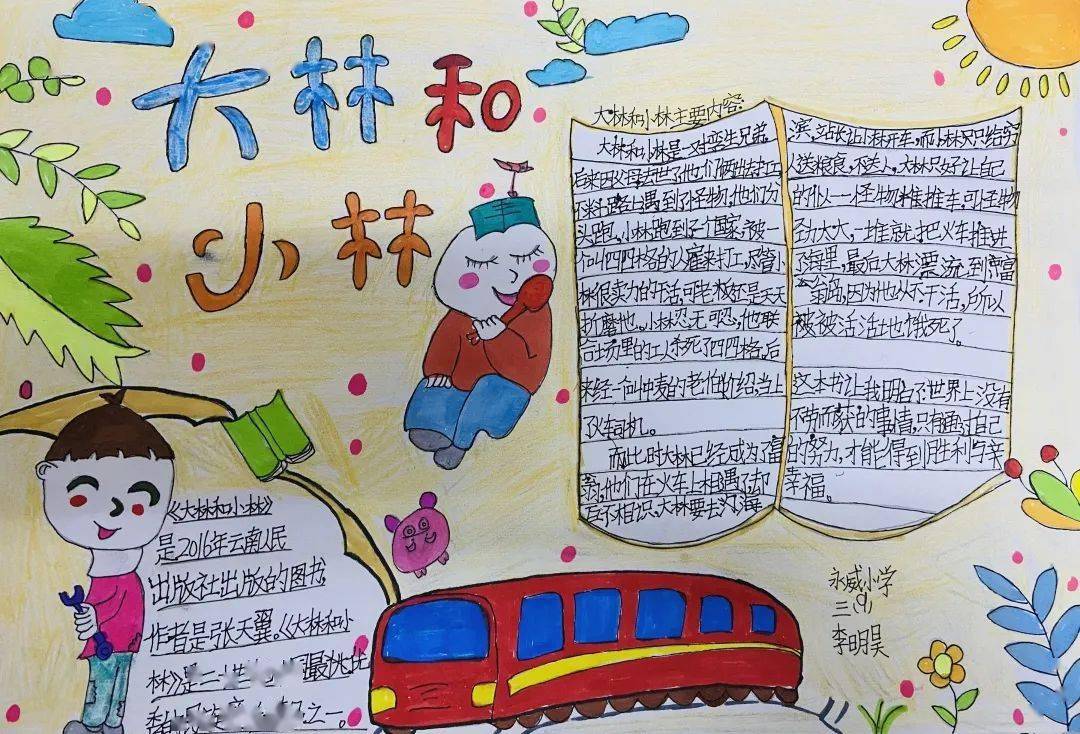 大林和
小林
大林和小林主要内容:
大林和小林是一对孪生兄弟,
后来因父母去世了他们俩出去打工
不料路上遇到了怪物,他们分
头跑。小林跑到了个国家,被一
个叫四四格的人雇来打工,尽管小
林很卖力的干活,可老板还是天天
折磨他。小林忍无可忍,他联
合工场里的工人杀死了四四格,后
来经一个叫中麦的老伯伯介绍,当上
了火车司机。
而此时大林已经成为了富
翁,他们在火车上相遇了却
互不相识。大林要去海
滨,站长让小林开车,而小林只给穷
人送粮食,不送人,大林只好让自己
的仆人一怪物推推车,可怪物
力大大,一推就把火车推进
了海里,最后大林漂流到富
翁岛,因为他从不干活,所以
被被活活地饿死了。
这本书让我明白了世界上没有
不劳而获的事情,只有通过自己
的努力,才能得到胜利与幸
幸福。
《大林和小林》
是2016年云南人民
出版社出版的图书,
作者是张天翼。《大林和小
林》是二十世 最
之一。
永威小学
三(9)
李明昊